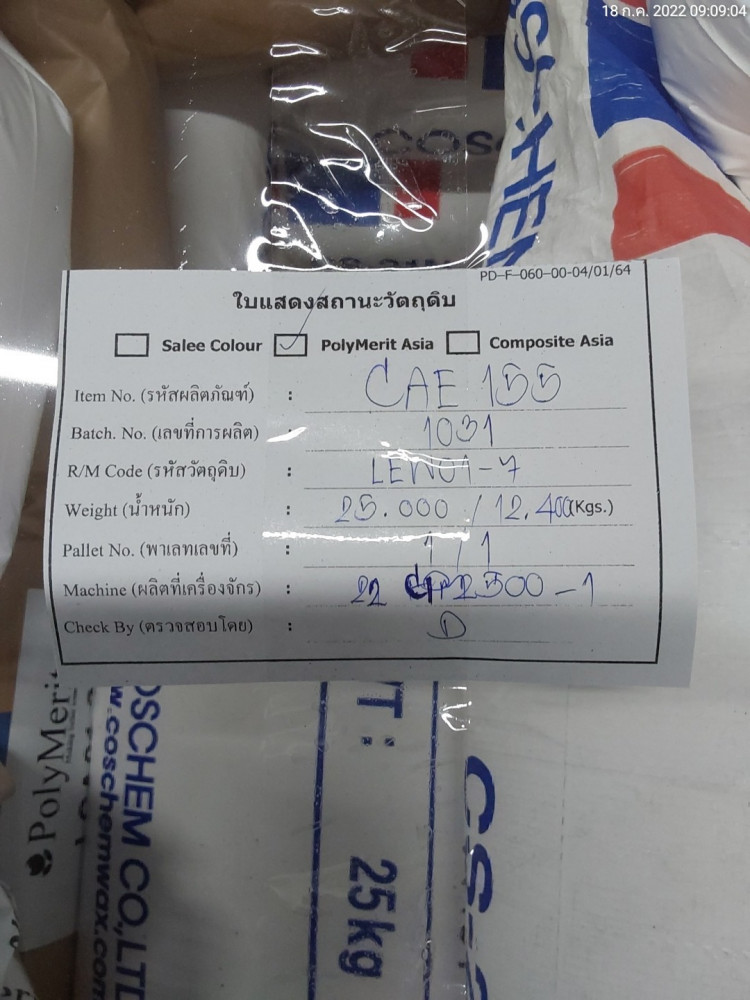 18 ก.ค. 2022 09:09:04
COSC
PD-F-060-00-04/01/64
ใบแสดงสถานะวัตถุดิบ
Salee Colour PolyMerit Asia Composite Asia
Item No. (รหัสผลิตภัณฑ์) : CAE 155
Batch. No. (เลขที่การผลิต) : 1031
R/M Code (รหัสวัตถุดิบ) :
Weight (น้ำหนัก) : 25.000 / 12.400(Kgs.)
Pallet No. (พาเลทเลขที่) : 1 / 1
Machine (ผลิตที่เครื่องจักร) : 22 2500-1
Check By (ตรวจสอบโดย) : D
PolyMerit
OSCHEM CO.,LTD
w.coschemwax.com
T :
25kg
CS-